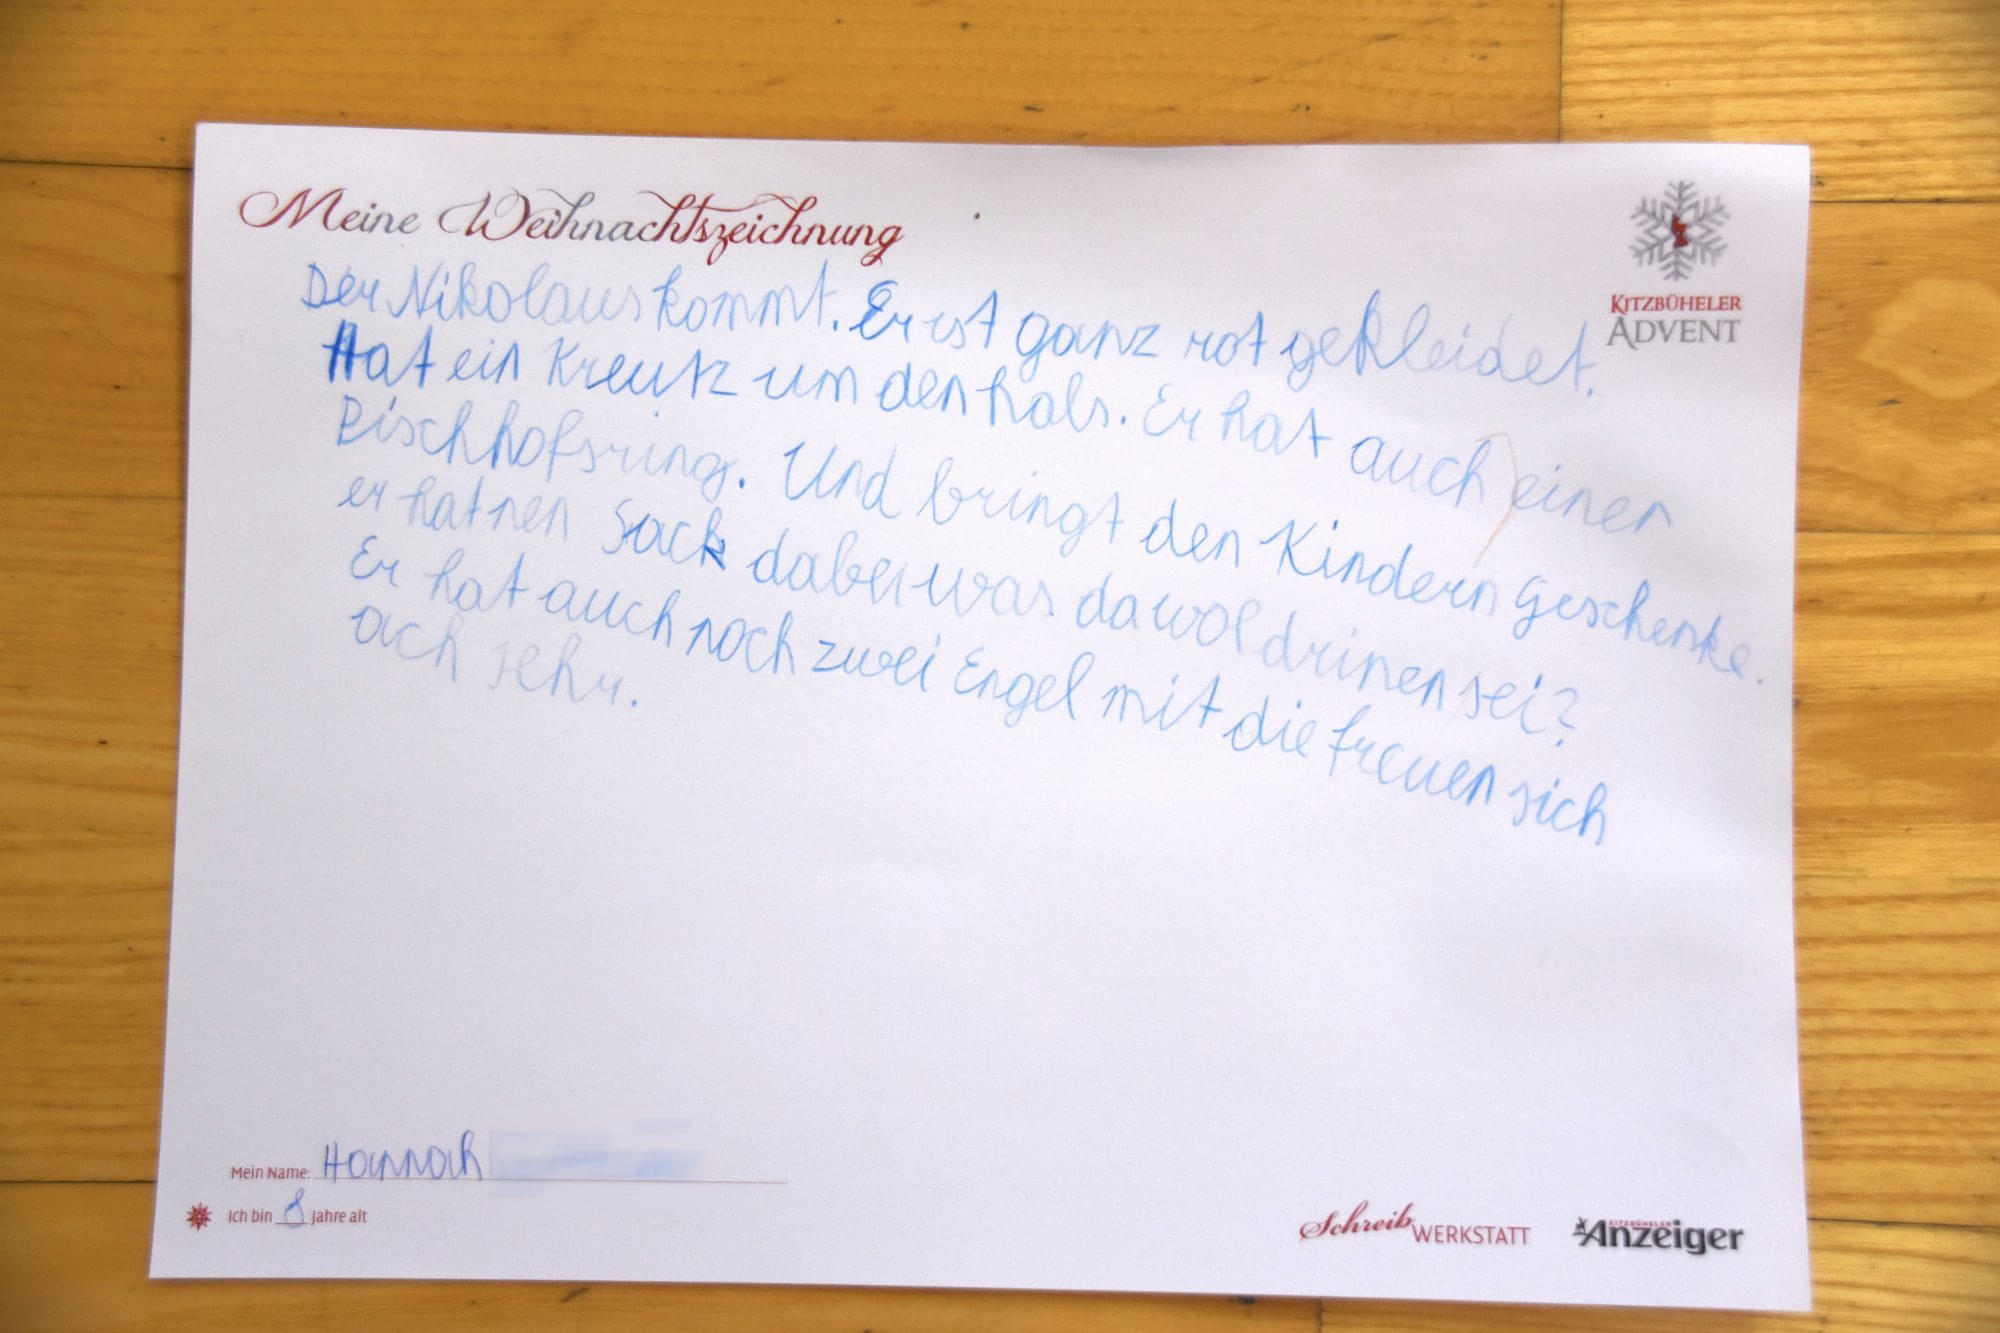 Meine Weihnachtszeichnung
KITZBÜHELER
ADVENT
Der Nikolaus kommt. Er ist ganz rot gekleidet.
Hat ein Kreutz um den hals. Er hat auch einen
Bischhofsring. Und bringt den Kindern Geschenke.
er hat nen Sack dabei was da wol drinen sei?
Er hat auch noch zwei Engel mit die freuen sich
ach sehr.
Mein Name: Hannah
Ich bin 8 Jahre alt
Schreib WERKSTATT
KITZBÜHELER
Anzeiger